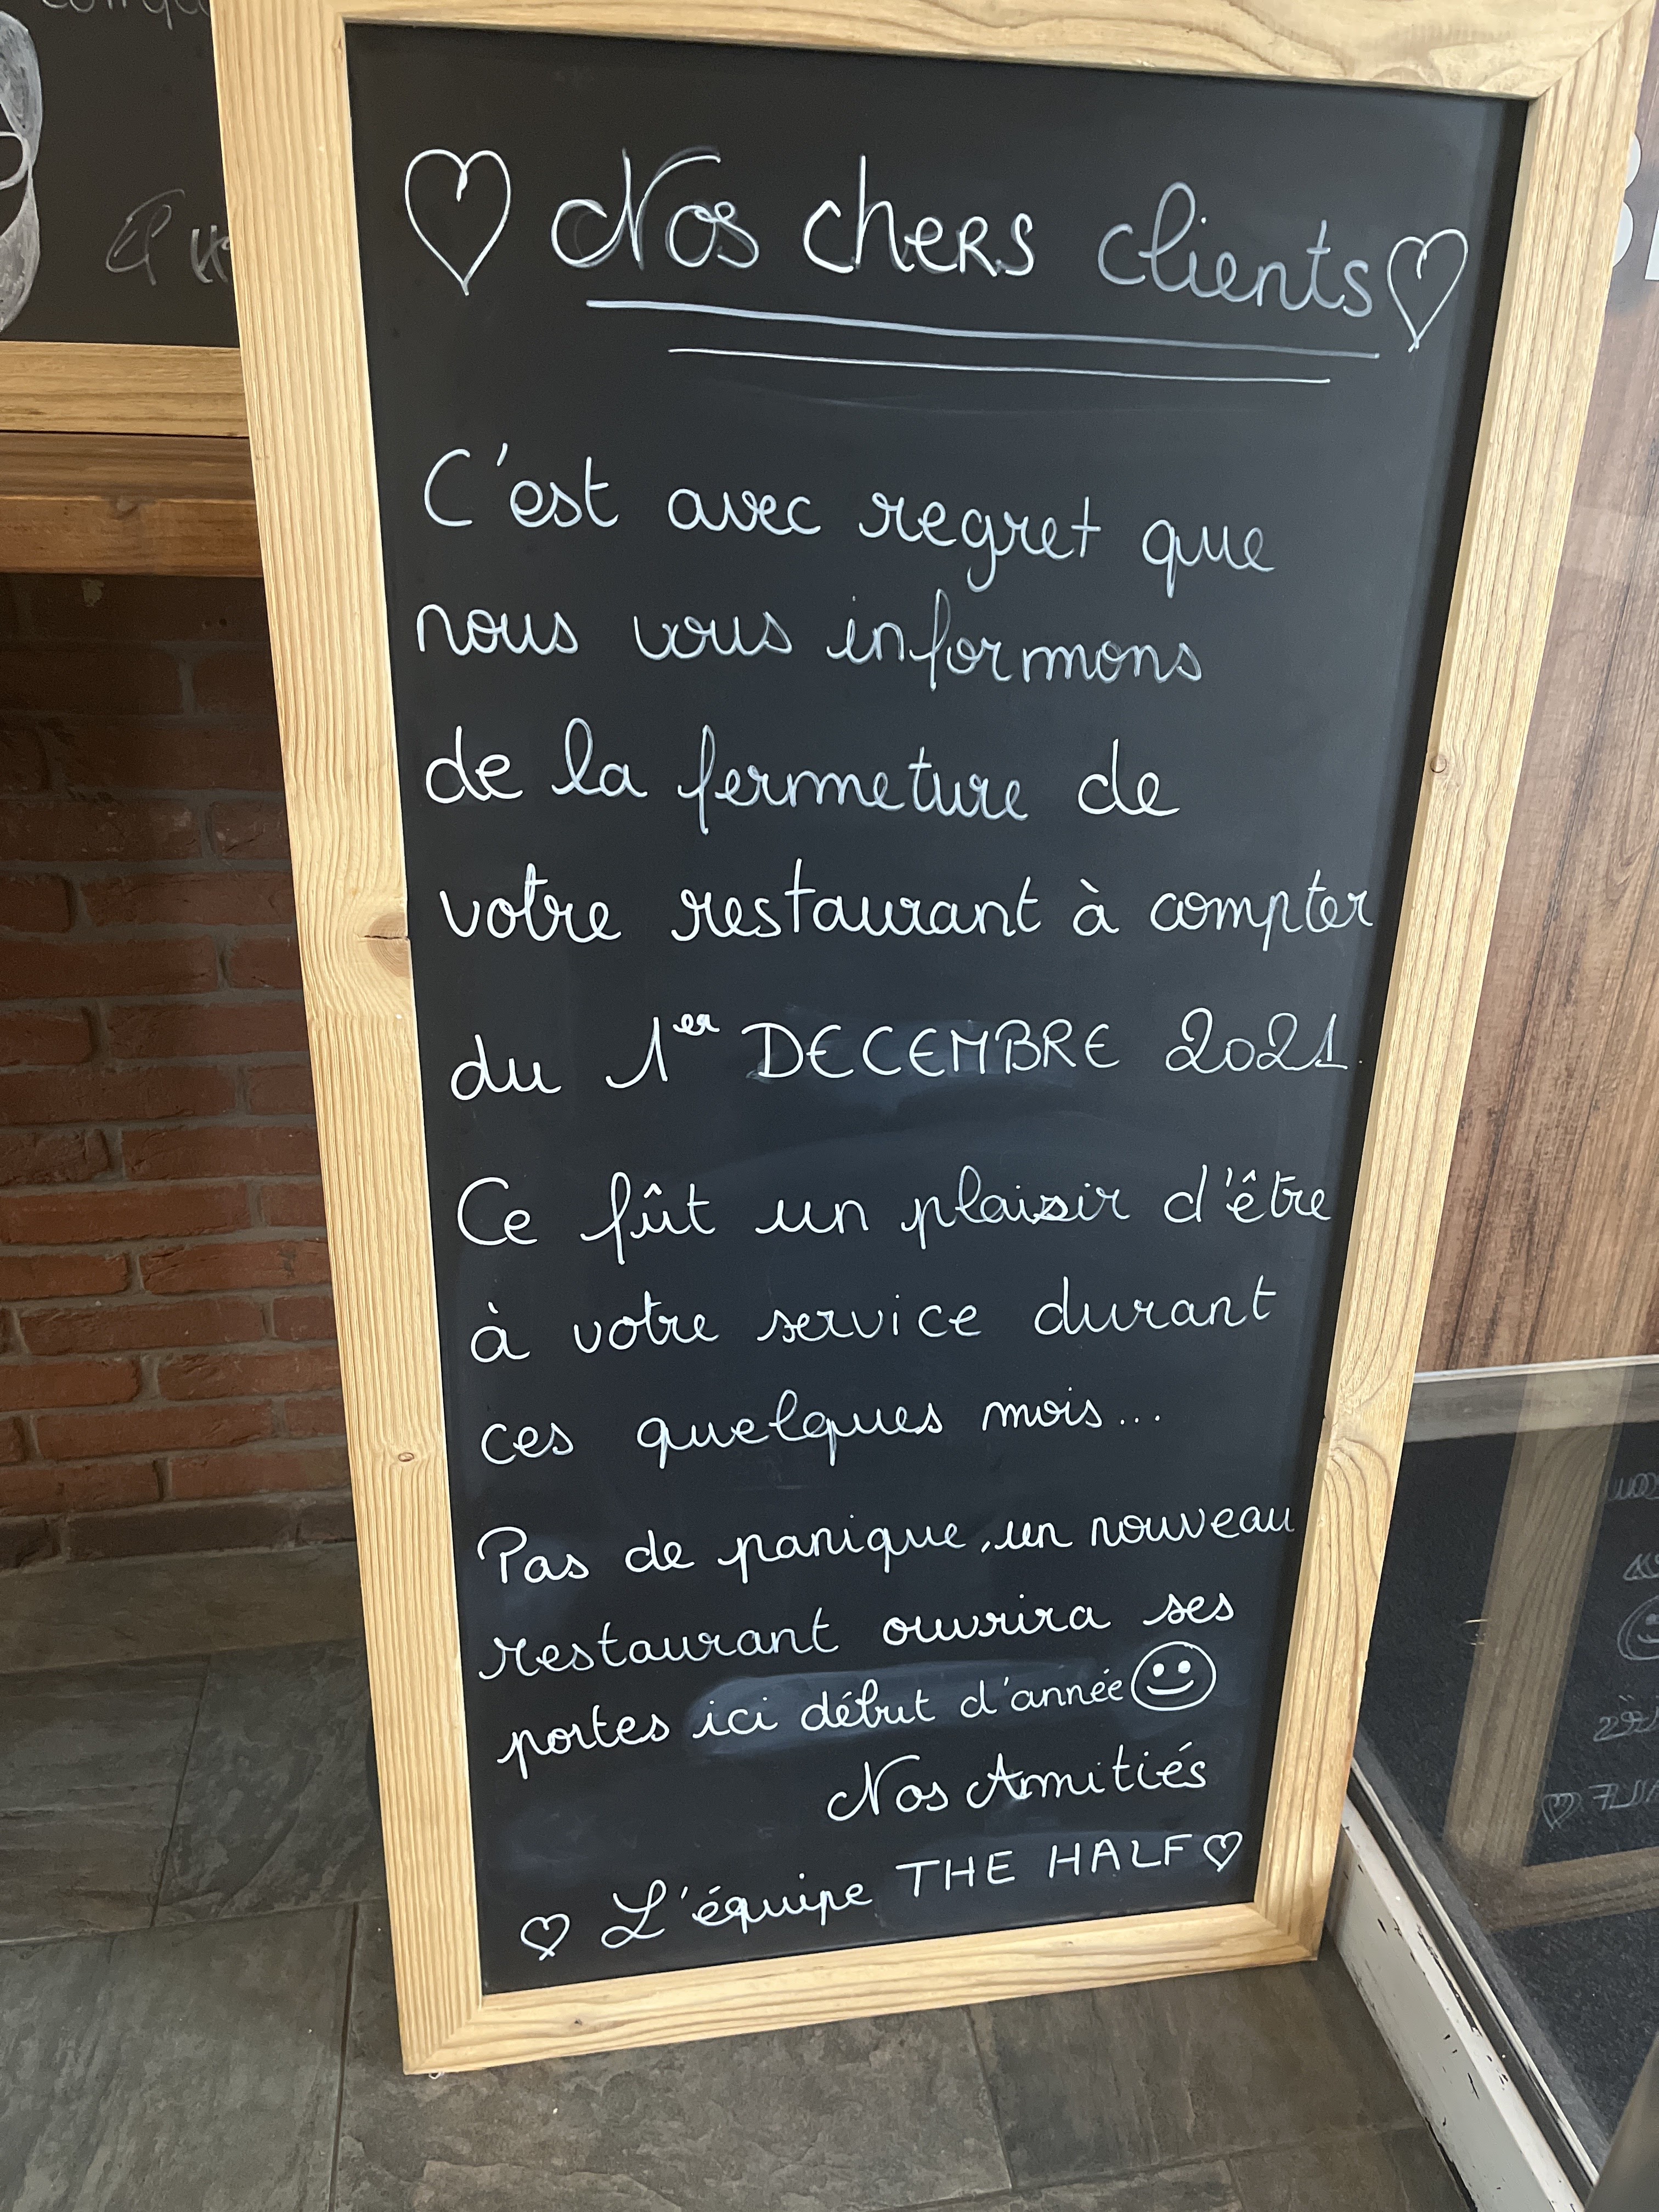 Nos chers clients
C'est avec regret que
nous vous informons
de la fermeture de
votre restaurant à compter
du 1er DECEMBRE 2021.
Ce fût un plaisir d'être
à votre service durant
ces quelques mois...
Pas de panique, un nouveau
restaurant ouvrira ses
portes ici début d'année
Nos Amitiés
L'équipe THE HALF